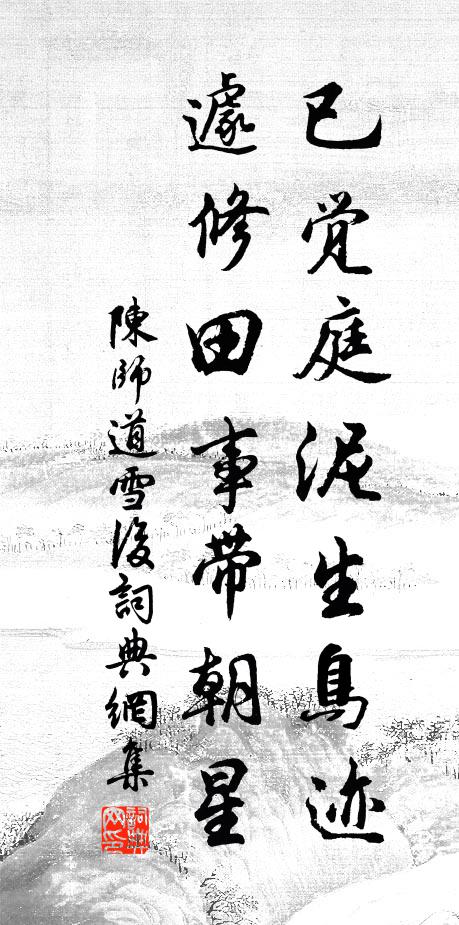 已觉庭泥生鳥迹
遽修田事带朝星
陳師道雪後詞典網集